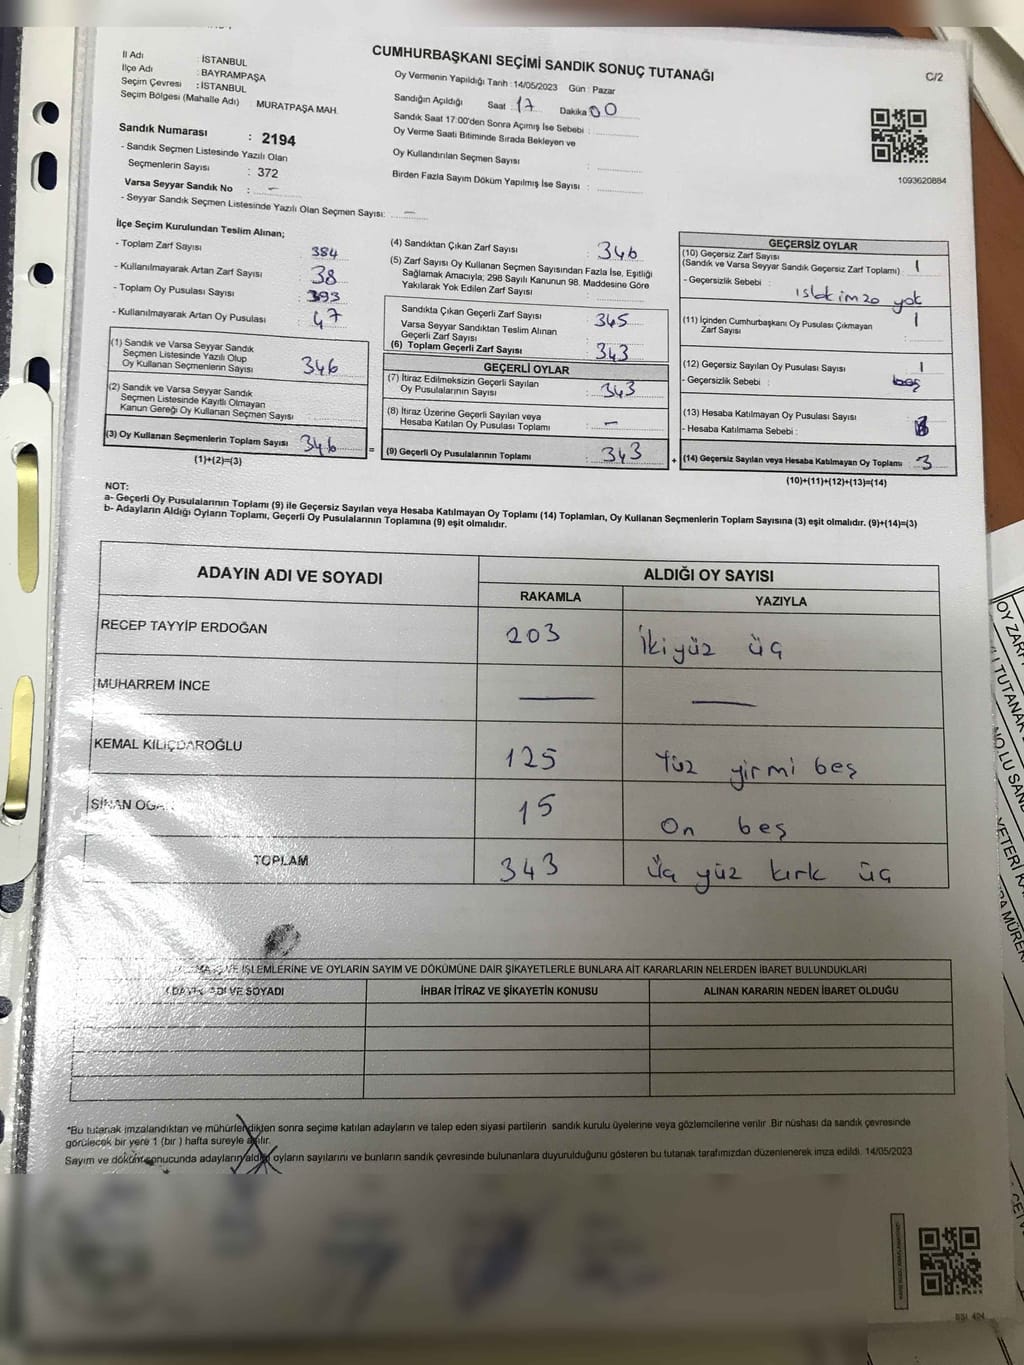 CUMHURBAŞKANI SEÇİMİ SANDIK SONUÇ TUTANAĞI
C/2
İl Adı : İSTANBUL
İlçe Adı : BAYRAMPAŞA
Seçim Çevresi : İSTANBUL
Seçim Bölgesi (Mahalle Adı) : MURATPAŞA MAH.
Sandık Numarası : 2194
- Sandık Seçmen Listesinde Yazılı Olan
Seçmenlerin Sayısı : 372
Varsa Seyyar Sandık No : -
- Seyyar Sandık Seçmen Listesinde Yazılı Olan Seçmen Sayısı: -
Oy Vermenin Yapıldığı Tarih : 14/05/2023 Gün : Pazar
Sandığın Açıldığı Saat : 17 Dakika 00
Sandık Saat 17:00'den Sonra Açımış İse Sebebi :
Oy Verme Saati Bitiminde Sırada Bekleyen ve
Oy Kullandırılan Seçmen Sayısı :
Birden Fazla Sayım Döküm Yapılmış İse Sayısı :
1093620884
İlçe Seçim Kurulundan Teslim Alınan;
- Toplam Zarf Sayısı : 384
- Kullanılmayarak Artan Zarf Sayısı : 38
- Toplam Oy Pusulası Sayısı : 393
- Kullanılmayarak Artan Oy Pusulası : 47
(1) Sandık ve Varsa Seyyar Sandık
Seçmen Listesinde Yazılı Olup
Oy Kullanan Seçmenlerin Sayısı : 346
(2) Sandık ve Varsa Seyyar Sandık
Seçmen Listesinde Kayıtlı Olmayan
Kanun Gereği Oy Kullanan Seçmen Sayısı :
(3) Oy Kullanan Seçmenlerin Toplam Sayısı : 346 =
(1)+(2)=(3)
(4) Sandıktan Çıkan Zarf Sayısı : 346
(5) Zarf Sayısı Oy Kullanan Seçmen Sayısından Fazla İse, Eşitliği
Sağlamak Amacıyla; 298 Sayılı Kanunun 98. Maddesine Göre
Yakılarak Yok Edilen Zarf Sayısı :
Sandıkta Çıkan Geçerli Zarf Sayısı : 345
Varsa Seyyar Sandıktan Teslim Alınan
Geçerli Zarf Sayısı :
(6) Toplam Geçerli Zarf Sayısı : 343
GEÇERLİ OYLAR
(7) İtiraz Edilmeksizin Geçerli Sayılan
Oy Pusulalarının Sayısı : 343
(8) İtiraz Üzerine Geçerli Sayılan veya
Hesaba Katılan Oy Pusulası Toplamı : -
(9) Geçerli Oy Pusulalarının Toplamı : 343 +
GEÇERSİZ OYLAR
(10) Geçersiz Zarf Sayısı
(Sandık ve Varsa Seyyar Sandık Geçersiz Zarf Toplamı) : 1
- Geçersizlik Sebebi : yok
(11) İçinden Cumhurbaşkanı Oy Pusulası Çıkmayan
Zarf Sayısı : 1
(12) Geçersiz Sayılan Oy Pusulası Sayısı : 1
- Geçersizlik Sebebi : boş
(13) Hesaba Katılmayan Oy Pusulası Sayısı :
- Hesaba Katılmama Sebebi :
(14) Geçersiz Sayılan veya Hesaba Katılmayan Oy Toplamı : 3
(10)+(11)+(12)+(13)=(14)
NOT:
a- Geçerli Oy Pusulalarının Toplamı (9) ile Geçersiz Sayılan veya Hesaba Katılmayan Oy Toplamı (14) Toplamları, Oy Kullanan Seçmenlerin Toplam Sayısına (3) eşit olmalıdır. (9)+(14)=(3)
b- Adayların Aldığı Oyların Toplamı, Geçerli Oy Pusulalarının Toplamına (9) eşit olmalıdır.
ADAYIN ADI VE SOYADI
ALDIĞI OY SAYISI
RAKAMLA YAZIYLA
RECEP TAYYİP ERDOĞAN 203 İkiyüz üç
MUHARREM İNCE — —
KEMAL KILIÇDAROĞLU 125 Yüz yirmi beş
SİNAN OĞAN 15 On beş
TOPLAM 343 Üç yüz kırk üç
İŞLEMLERİNE VE OYLARIN SAYIM VE DÖKÜMÜNE DAİR ŞİKAYETLERLE BUNLARA AİT KARARLARIN NELERDEN İBARET BULUNDUKLARI
ADI VE SOYADI
İHBAR İTİRAZ VE ŞİKAYETİN KONUSU
ALINAN KARARIN NEDEN İBARET OLDUĞU
*Bu tutanak imzalandıktan ve mühürlendikten sonra seçime katılan adayların ve talep eden siyasi partilerin sandık kurulu üyelerine veya gözlemcilerine verilir. Bir nüshası da sandık çevresinde
görülecek bir yere 1 (bir) hafta süreyle asılır.
Sayım ve döküm sonucunda adayların aldığı oyların sayılarını ve bunların sandık çevresinde bulunanlara duyurulduğunu gösteren bu tutanak tarafımızdan düzenlenerek imza edildi. 14/05/2023
OY ZARF
TUTANAK
NO LU SAN
YETERİ K